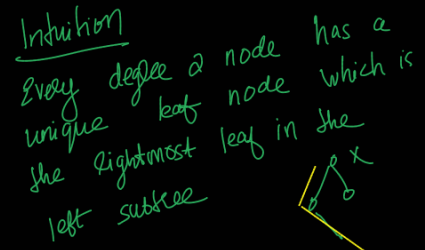 Intuition
Every degree 2 node has a
unique leaf node which is
the rightmost leaf in the
left subtree
X